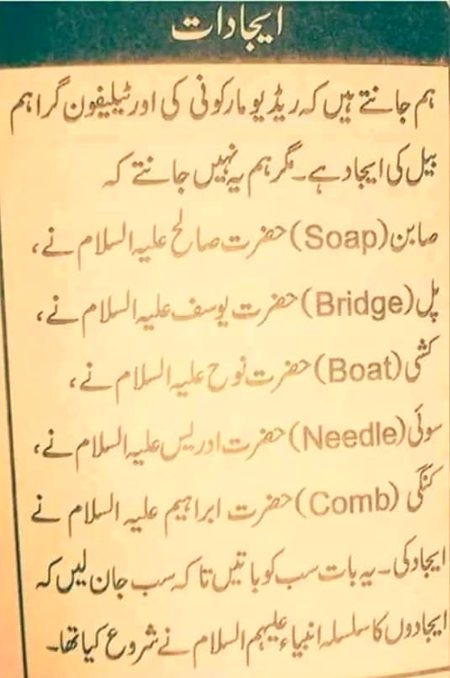 ایجادات
ہم جانتے ہیں کہ ریڈیو مارکونی کی اور ٹیلیفون گراہم
بیل کی ایجاد ہے۔ مگر ہم یہ نہیں جانتے کہ
صابن (Soap) حضرت صالح علیہ السلام نے،
پل (Bridge) حضرت یوسف علیہ السلام نے،
کشی (Boat) حضرت نوح علیہ السلام نے،
سوئی (Needle) حضرت ادریس علیہ السلام نے،
کنگی (Comb) حضرت ابراہیم علیہ السلام نے
ایجاد کی۔ یہ بات سب کو باتیں تاکہ سب جان لیں کہ
ایجادوں کا سلسلہ انبیاء علیہم السلام نے شروع کیا تھا۔